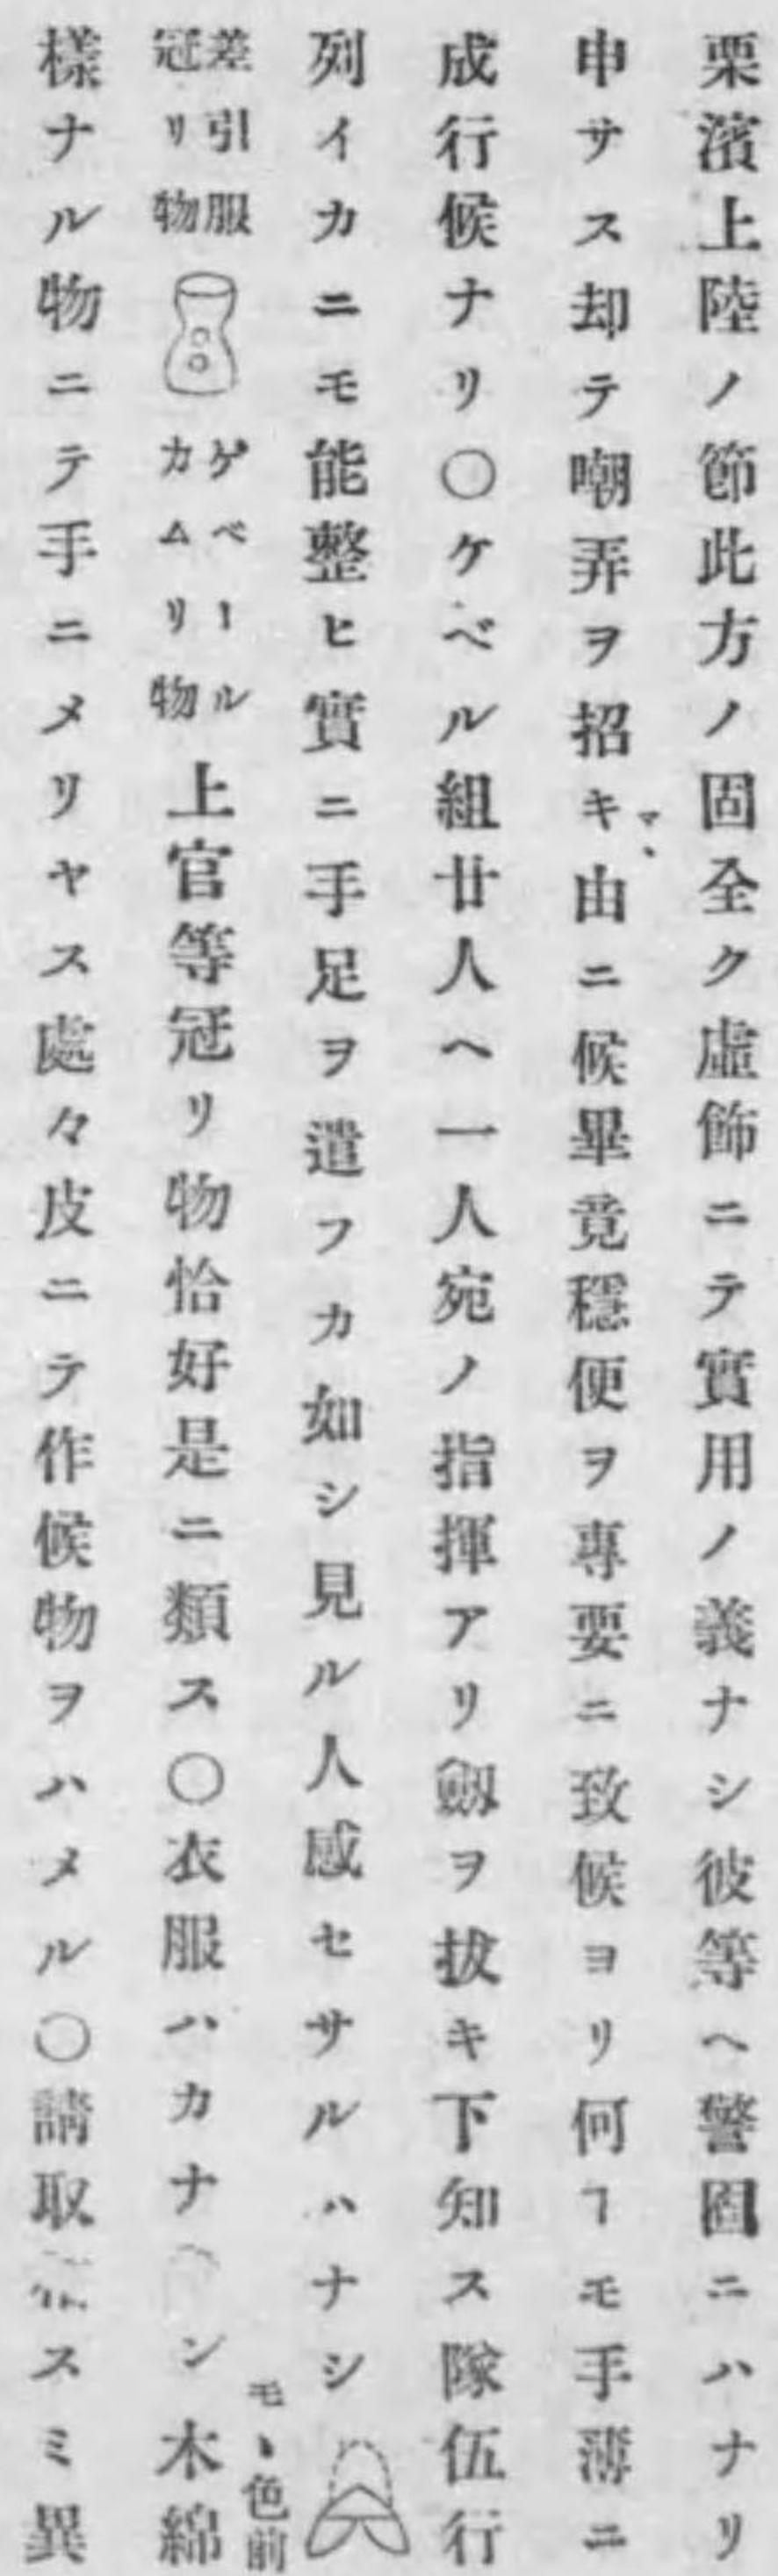 栗濱上陸ノ節此方ノ固全ク虚飾ニテ實用ノ義ナシ彼等ヘ警固ニハナリ
申サス却テ嘲弄ヲ招キ由ニ候畢竟穩便ヲ專要ニ致候ヨリ何ヿモ手薄ニ
マヽ
成行候ナリ〇ケベル組廿人ヘ一人宛ノ指揮アリ劔ヲ抜キ下知ス隊伍行
列イカニモ能整ヒ實ニ手足ヲ遣フカ如シ見ル人感セサルハナシ
差引服
冠リ物
ゲベール
カムリ物
上官等冠リ物恰好是ニ類ス〇衣服ハカナ ン木綿
モヽ色前
樣ナル物ニテ手ニメリヤス處々皮ニテ作候物ヲハメル〇請取 スミ異